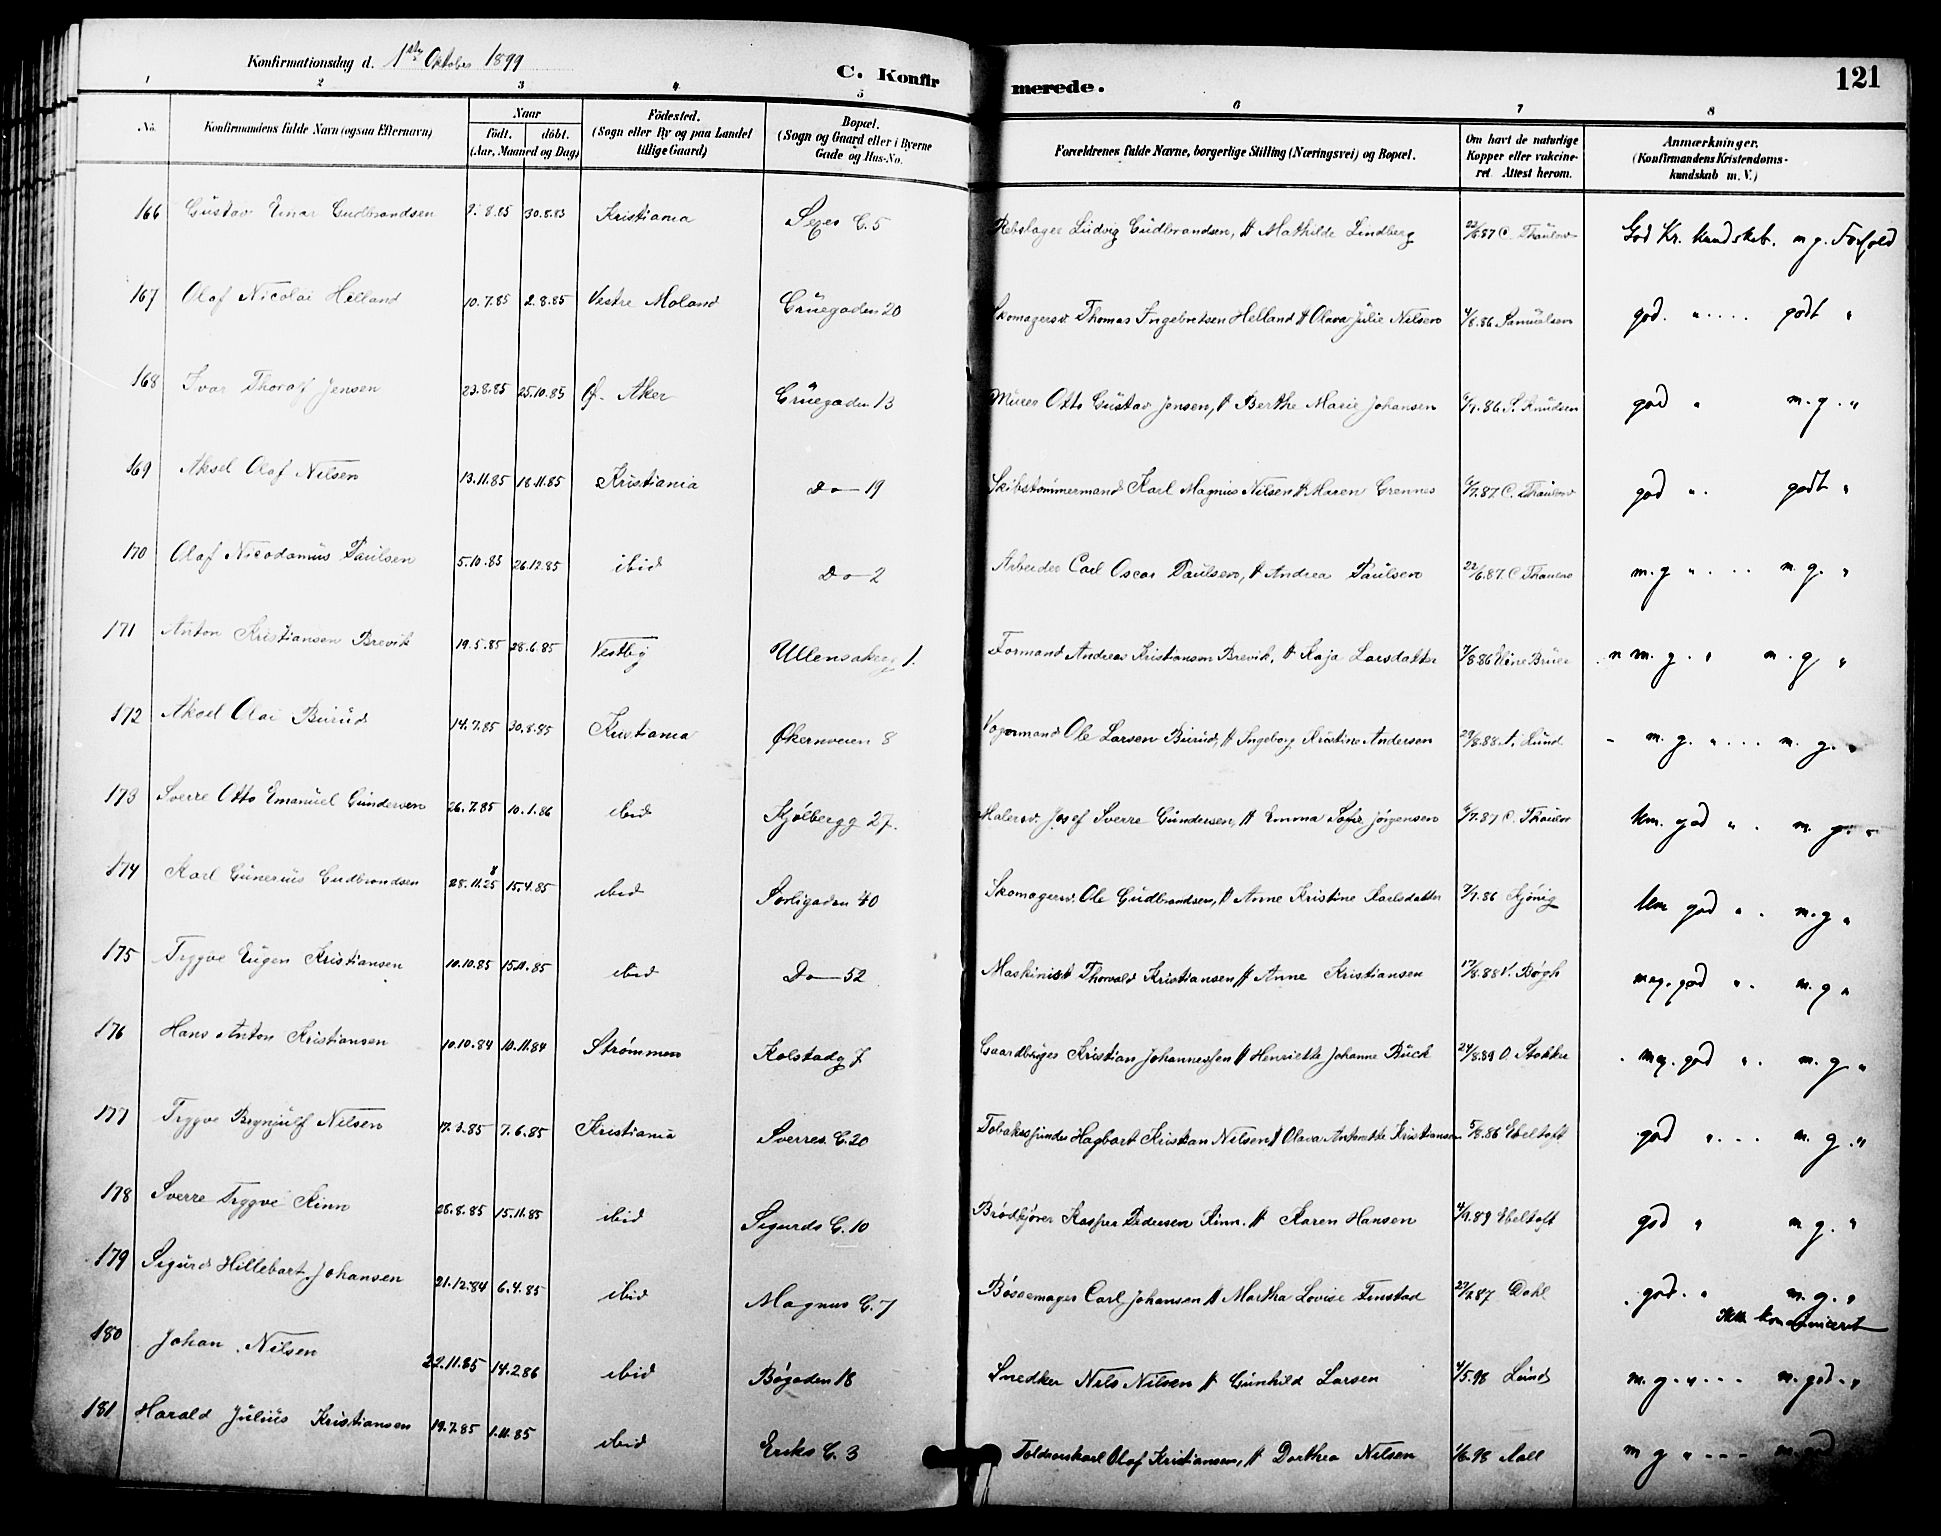 Konfirmationsdag d. 1ste Oktober 1899
C. Konfirmerede.
121
1 2 3 4 5 6 7 8
No. Konfirmandens fulde Navn (ogsaa Efternavn) Naar födt. döbt. (Aar, Maaned og Dag) Födested. (Sogn eller By og paa Landet tillige Gaard) Bopæl. (Sogn og Gaard eller i Byerne Gade og Hus-No. Forældrenes fulde Navne, borgerlige Stilling (Næringsvei) og Bopæl. Om havt de naturlige Kopper eller vakcineret. Attest herom. Anmærkninger. (Konfirmandens Kristendomskundskab m. V.)
166 Gustav Einar Gudbrandsen 9.8.85 30.8.85 Kristiania G. 5 Rebslager Ludvig Gudbrandsen, & Mathilde Lindberg 22/6.87 C. Thaulow God Kr. kundskab. m g. Forhold
167 Olaf Nicolai Helland 10.7.85 2.8.85 Vestre Moland Gruegaden 20 Skomagersv. Thomas Ingebretsen Helland & Olava Julie Nilsen 4/8.86 Samuelsen god. " godt "
168 Ivar Thoralf Jensen 23.8.85 25.10.85 Ø. Aker Gruegaden 13 Murer Otto Gustav Jensen, & Berthe Marie Johansen 6/9.86 S. Knudsen god " m. g. "
169 Aksel Olaf Nilsen 13.11.85 18.11.85 Kristiania Do 19 Skibstømmermand Karl Magnus Nilsen & Maren Grennes 6/7.87 C. Thaulow god " godt "
170 Olaf Nicodamus Paulsen 5.10.85 26.12.85 ibid Do 2 Arbeider Carl Oscar Paulsen, & Andrea Paulsen 22/6.87 C. Thaulow m. g " m. g. "
171 Anton Kristiansen Brevik 19.5.85 28.6.85 Vestby Ullensakerg 1. Formand Andreas Kristiansen Brevik, & Kaja Larsdatter 7/8.86 m. g. " m. g "
172 Aksel Olai Burud 14.7.85 30.8.85 Kristiania Økernveien 8 Vognmand Ole Larsen Burud, & Ingeborg Kristine Andersen 29/8.88 Lund m. g. " m. g. "
173 Sverre Otto Emanuel Gundersen 26.7.85 10.1.86 ibid Kjølbergg 27. Malersv. Josef Sverre Gundersen, & Emma Sofie Jørgensen 6/7.87 C. Thaulow god " m. g. "
174 Karl Gunerius Gudbrandsen 28.11.85 15.4.85 ibid Sorligaden 40 Skomagersv. Ole Gudbrandsen, & Anne Kristine Karlsdatter 7/9.86 Kjönig god " m. g "
175 Trygve Eugen Kristiansen 10.10.85 15.11.85 ibid Do 52 Maskinist Thorvald Kristiansen & Anne Kristiansen 17/8.88 V. Bøgh meg. god " m. g "
176 Hans Anton Kristiansen 10.10.84 10.11.84 Strømmen Kolstadg 7 Gaardbruger Kristian Johannessen & Henriette Johanne Buck 24/8.89 O. Stokke meg. god " m. g "
177 Trygve Brynjulf Nilsen 17.3.85 7.6.85 Kristiania Sverres G. 20 Tobakspinder Hagbart Kristian Nilsen & Olava Antonette Kristiansen 5/8.86 Ebeltoft god " m. g. "
178 Sverre Trygve Kinn 26.8.85 15.11.85 ibid Sigurds G. 10 Brødkjører Kasper Pedersen Kinn. & Karen Hansen 4/9.89 Ebeltoft god " m g. "
179 Sigurd Hillebart Johansen 21.12.84 6.4.85 ibid Magnus G. 7 Bøssemager Carl Johansen & Martha Lovise Finstad 27/8.87 Dahl god. " m. g. "
Ikke kommuniceret
180 Johan Nilsen 22.11.85 14.2.86 ibid Bøgaden 18 Snedker Nils Nilsen & Gunhild Larsen 4/5.98 Lund m. g. " m. god. "
181 Harald Julius Kristiansen 19.7.85 1.11.85 ibid Eriks G. 3 Toldoerskarl Olaf Kristiansen, & Dorthea Nilsen 1/6.98 Aall m g " m. god